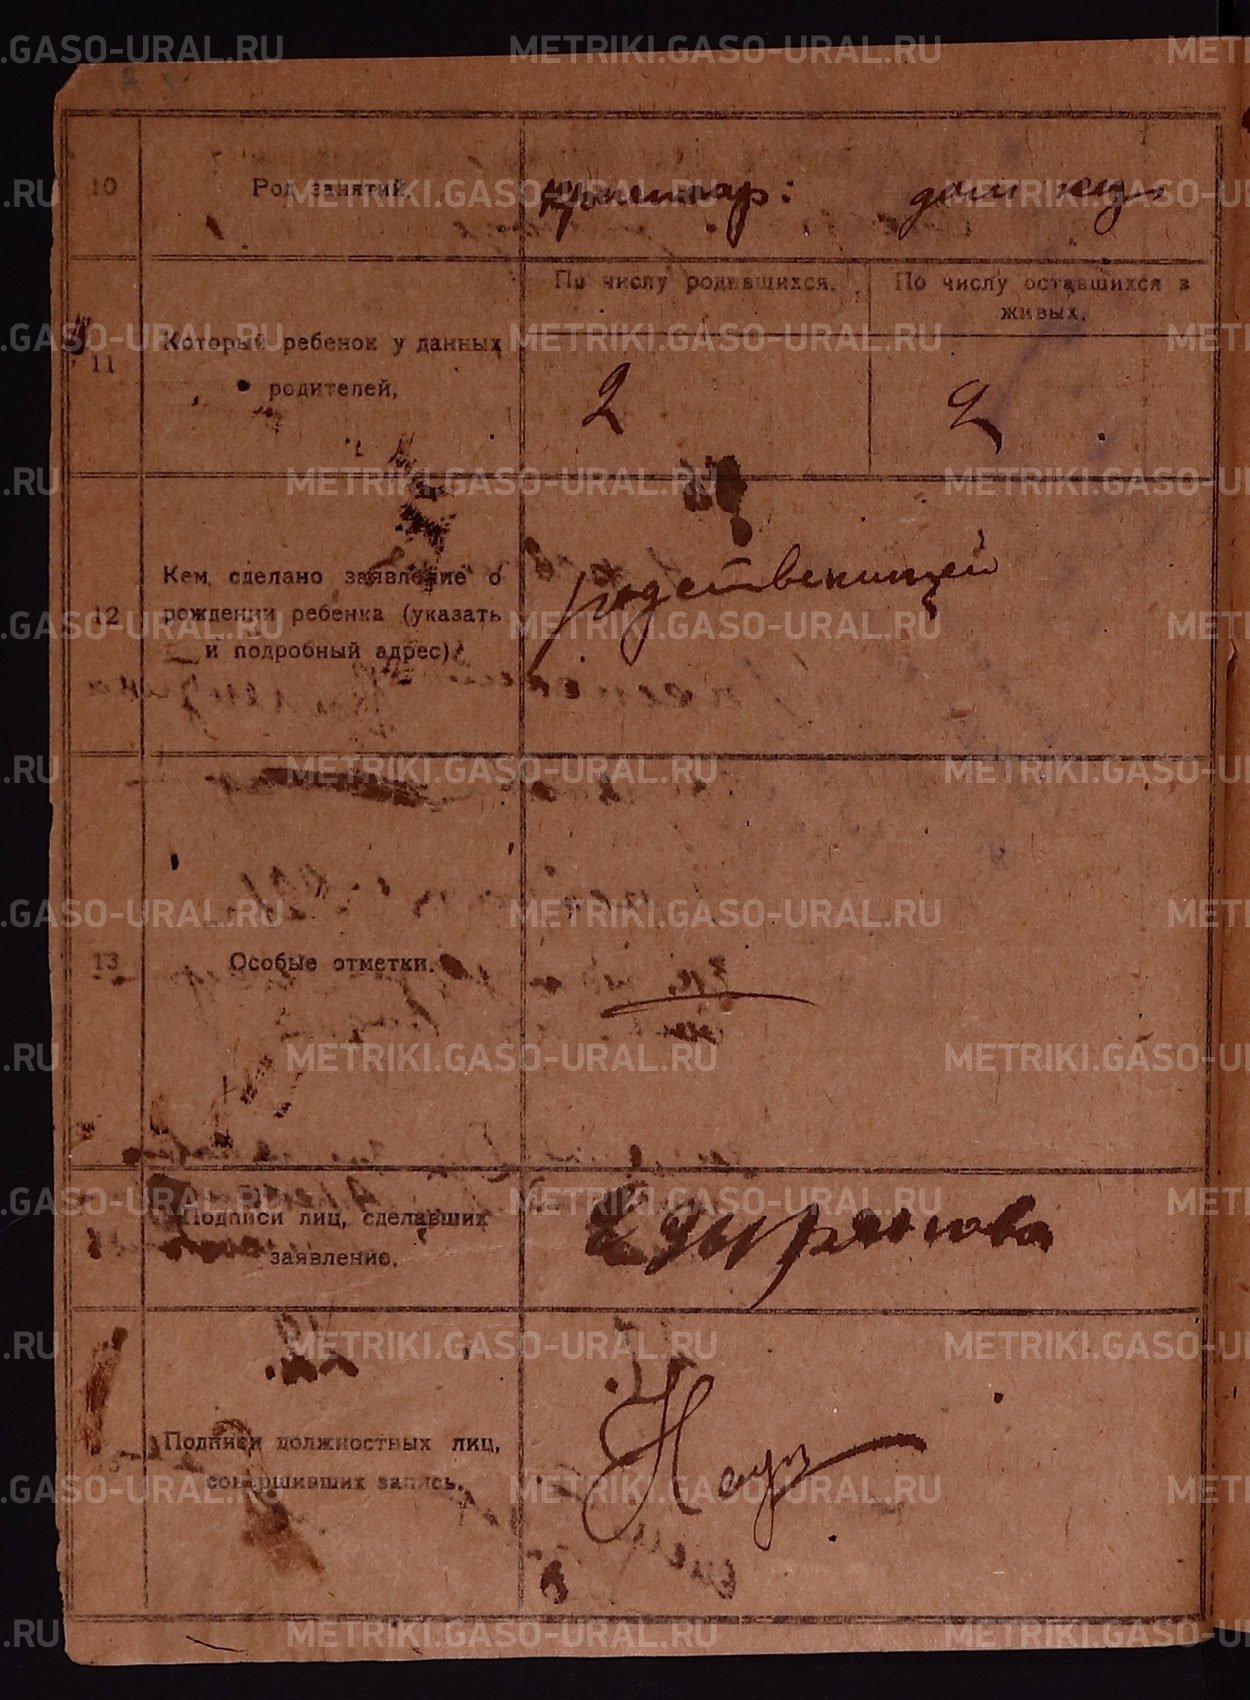 10 Род занятий. дом хоз
По числу родившихся. По числу оставшихся в
живых.
11 Который ребенок у данных
родителей.
2 2
Кем сделано заявление о
12 рождении ребенка (указать
и подробный адрес).
родственницей
13 Особые отметки.
Подписи лиц, сделавших
заявление.
Подписи должностных лиц,
совершивших запись.
METRIKI.GASO-URAL.RU